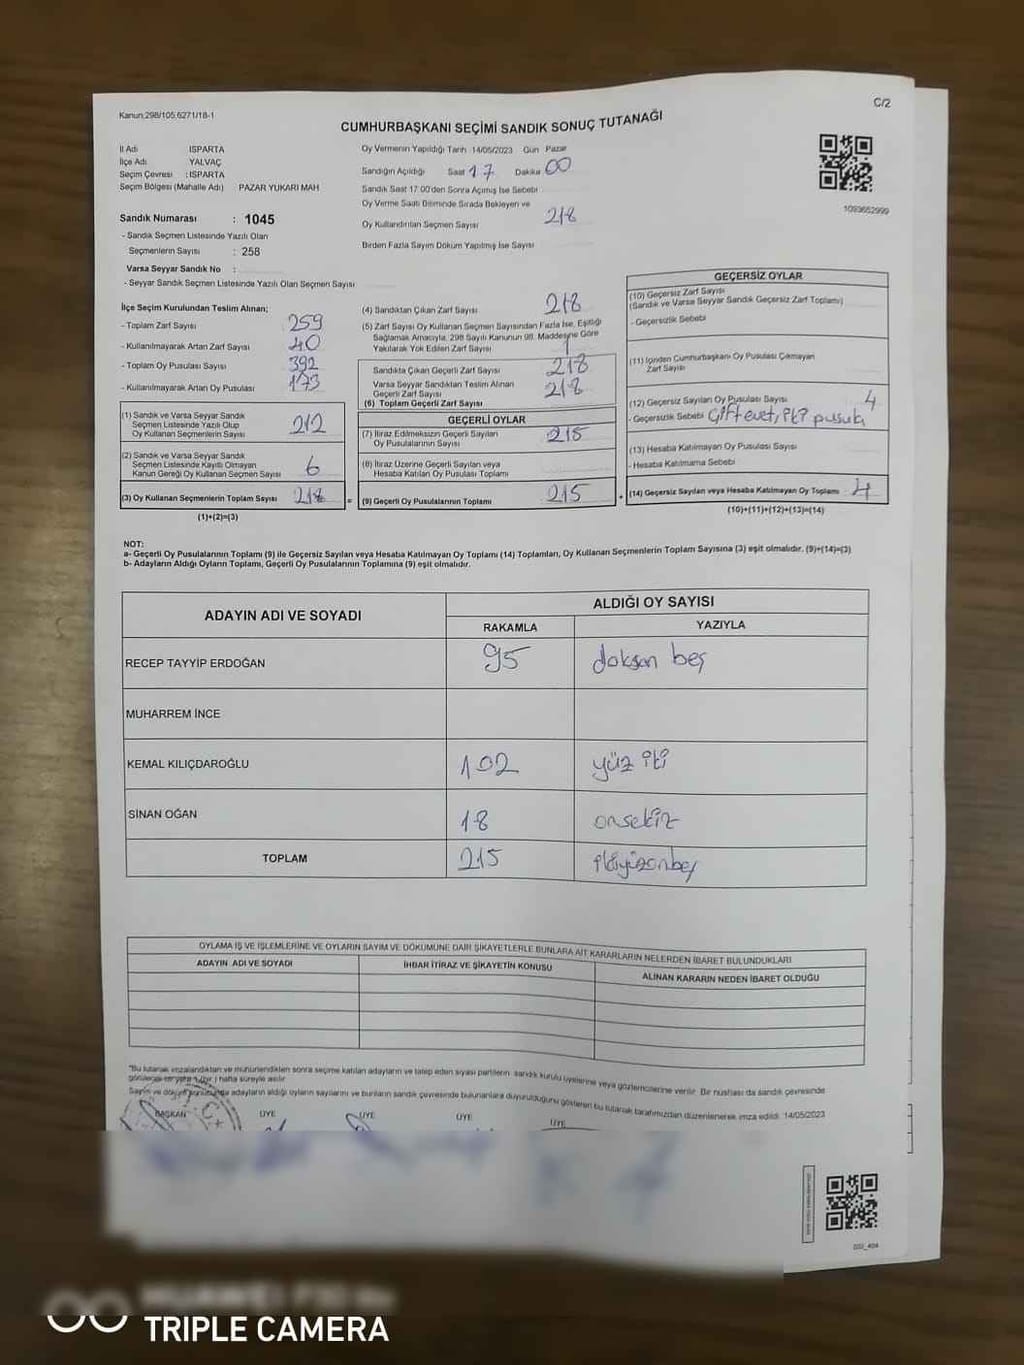 Kanun;298/105,6271/18-1
C/2
CUMHURBAŞKANI SEÇİMİ SANDIK SONUÇ TUTANAĞI
İl Adı ISPARTA
İlçe Adı YALVAÇ
Seçim Çevresi : ISPARTA
Seçim Bölgesi (Mahalle Adı) PAZAR YUKARI MAH
Oy Vermenin Yapıldığı Tarih 14/05/2023 Gün Pazar
Sandığın Açıldığı Saat 17 Dakika 00
Sandık Saat 17:00'den Sonra Açılmış İse Sebebi
Oy Verme Saati Bitiminde Sırada Bekleyen ve
Oy Kullandırılan Seçmen Sayısı 218
Birden Fazla Sayım Döküm Yapılmış İse Sayısı
1093652999
Sandık Numarası : 1045
- Sandık Seçmen Listesinde Yazılı Olan
Seçmenlerin Sayısı : 258
Varsa Seyyar Sandık No :
- Seyyar Sandık Seçmen Listesinde Yazılı Olan Seçmen Sayısı
İlçe Seçim Kurulundan Teslim Alınan;
- Toplam Zarf Sayısı 259
- Kullanılmayarak Artan Zarf Sayısı 40
- Toplam Oy Pusulası Sayısı 392
- Kullanılmayarak Artan Oy Pusulası 173
(1) Sandık ve Varsa Seyyar Sandık
Seçmen Listesinde Yazılı Olup
Oy Kullanan Seçmenlerin Sayısı 212
(2) Sandık ve Varsa Seyyar Sandık
Seçmen Listesinde Kayıtlı Olmayan
Kanun Gereği Oy Kullanan Seçmen Sayısı 6
(3) Oy Kullanan Seçmenlerin Toplam Sayısı 218 =
(1)+(2)=(3)
(4) Sandıktan Çıkan Zarf Sayısı 218
(5) Zarf Sayısı Oy Kullanan Seçmen Sayısından Fazla İse, Eşitliği
Sağlamak Amacıyla, 298 Sayılı Kanunun 98. Maddesine Göre
Yakılarak Yok Edilen Zarf Sayısı
Sandıkta Çıkan Geçerli Zarf Sayısı 218
Varsa Seyyar Sandıktan Teslim Alınan
Geçerli Zarf Sayısı 218
(6) Toplam Geçerli Zarf Sayısı
GEÇERLİ OYLAR
(7) İtiraz Edilmeksizin Geçerli Sayılan
Oy Pusulalarının Sayısı 215
(8) İtiraz Üzerine Geçerli Sayılan veya
Hesaba Katılan Oy Pusulası Toplamı
(9) Geçerli Oy Pusulalarının Toplamı 215
GEÇERSİZ OYLAR
(10) Geçersiz Zarf Sayısı
(Sandık ve Varsa Seyyar Sandık Geçersiz Zarf Toplamı)
- Geçersizlik Sebebi
(11) İçinden Cumhurbaşkanı Oy Pusulası Çıkmayan
Zarf Sayısı
(12) Geçersiz Sayılan Oy Pusulası Sayısı 4
- Geçersizlik Sebebi Çift evet, iki pusula
(13) Hesaba Katılmayan Oy Pusulası Sayısı
- Hesaba Katılmama Sebebi
(14) Geçersiz Sayılan veya Hesaba Katılmayan Oy Toplamı 4
(10)+(11)+(12)+(13)=(14)
NOT:
a- Geçerli Oy Pusulalarının Toplamı (9) ile Geçersiz Sayılan veya Hesaba Katılmayan Oy Toplamı (14) Toplamları, Oy Kullanan Seçmenlerin Toplam Sayısına (3) eşit olmalıdır. (9)+(14)=(3)
b- Adayların Aldığı Oyların Toplamı, Geçerli Oy Pusulalarının Toplamına (9) eşit olmalıdır.
ADAYIN ADI VE SOYADI ALDIĞI OY SAYISI
RAKAMLA YAZIYLA
RECEP TAYYİP ERDOĞAN 95 doksan beş
MUHARREM İNCE
KEMAL KILIÇDAROĞLU 102 yüz iki
SİNAN OĞAN 18 onsekiz
TOPLAM 215 ikiyüzonbeş
OYLAMA İŞ VE İŞLEMLERİNE VE OYLARIN SAYIM VE DÖKÜMÜNE DAİR ŞİKAYETLERLE BUNLARA AİT KARARLARIN NELERDEN İBARET BULUNDUKLARI
ADAYIN ADI VE SOYADI İHBAR İTİRAZ VE ŞİKAYETİN KONUSU ALINAN KARARIN NEDEN İBARET OLDUĞU
"Bu tutanak imzalandıktan ve mühürlendikten sonra seçime katılan adayların ve talep eden siyasi partilerin sandık kurulu üyelerine veya gözlemcilerine verilir. Bir nüshası da sandık çevresinde
görülecek bir yere 1 (bir) hafta süreyle asılır.
Sayım ve döküm sonucunda adayların aldığı oyların sayılarını ve bunların sandık çevresinde bulunanlara duyurulduğunu gösteren bu tutanak tarafımızdan düzenlenerek imza edildi. 14/05/2023
BAŞKAN ÜYE ÜYE ÜYE ÜYE
TRIPLE CAMERA